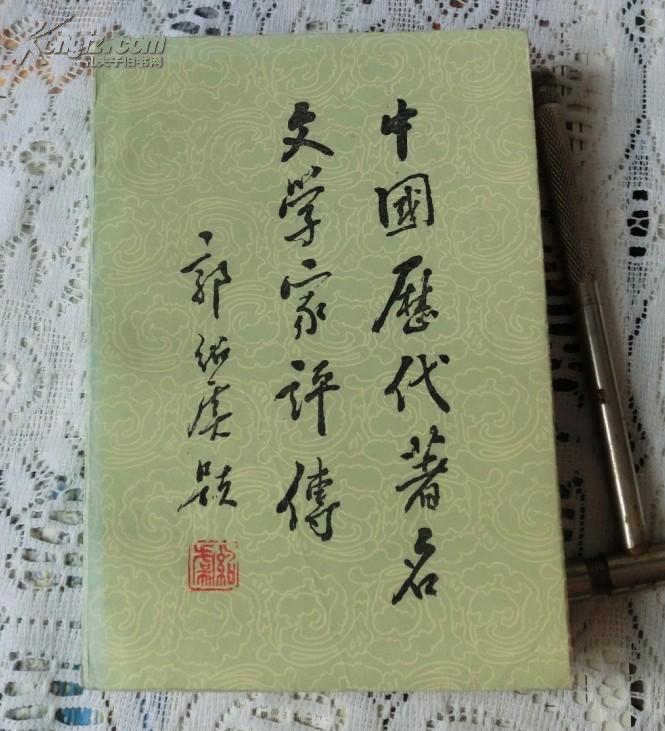 Kongfz.com
孔夫子旧书网
中國歷代著名
文学家評傳
郭紹虞題
紹虞